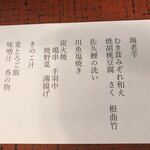 海老芋
むき茸みぞれ和え
焼胡桃豆腐 さく 根曲竹
佐久鯉の洗い
川魚塩焼き
炭火焼
鶏串 手羽中
焼野菜 薄揚げ
きのこ汁
麦とろご飯
味噌汁 香の物